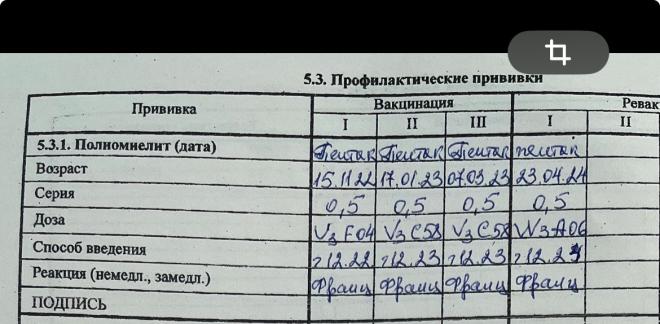 5.3. Профилактические прививки
Прививка Вакцинация Ревак
I II III I II
5.3.1. Полиомиелит (дата) Пентак Пентак Пентак пентак
Возраст 15.11.22 17.01.23 07.03.23 23.04.24
Серия 0,5 0,5 0,5 0,5
Доза V3F04 V3C58 V3C58 W3A06
Способ введения г12.22 г12.23 г12.23
Реакция (немедл., замедл.) Франц Франц Франц Франц
ПОДПИСЬ